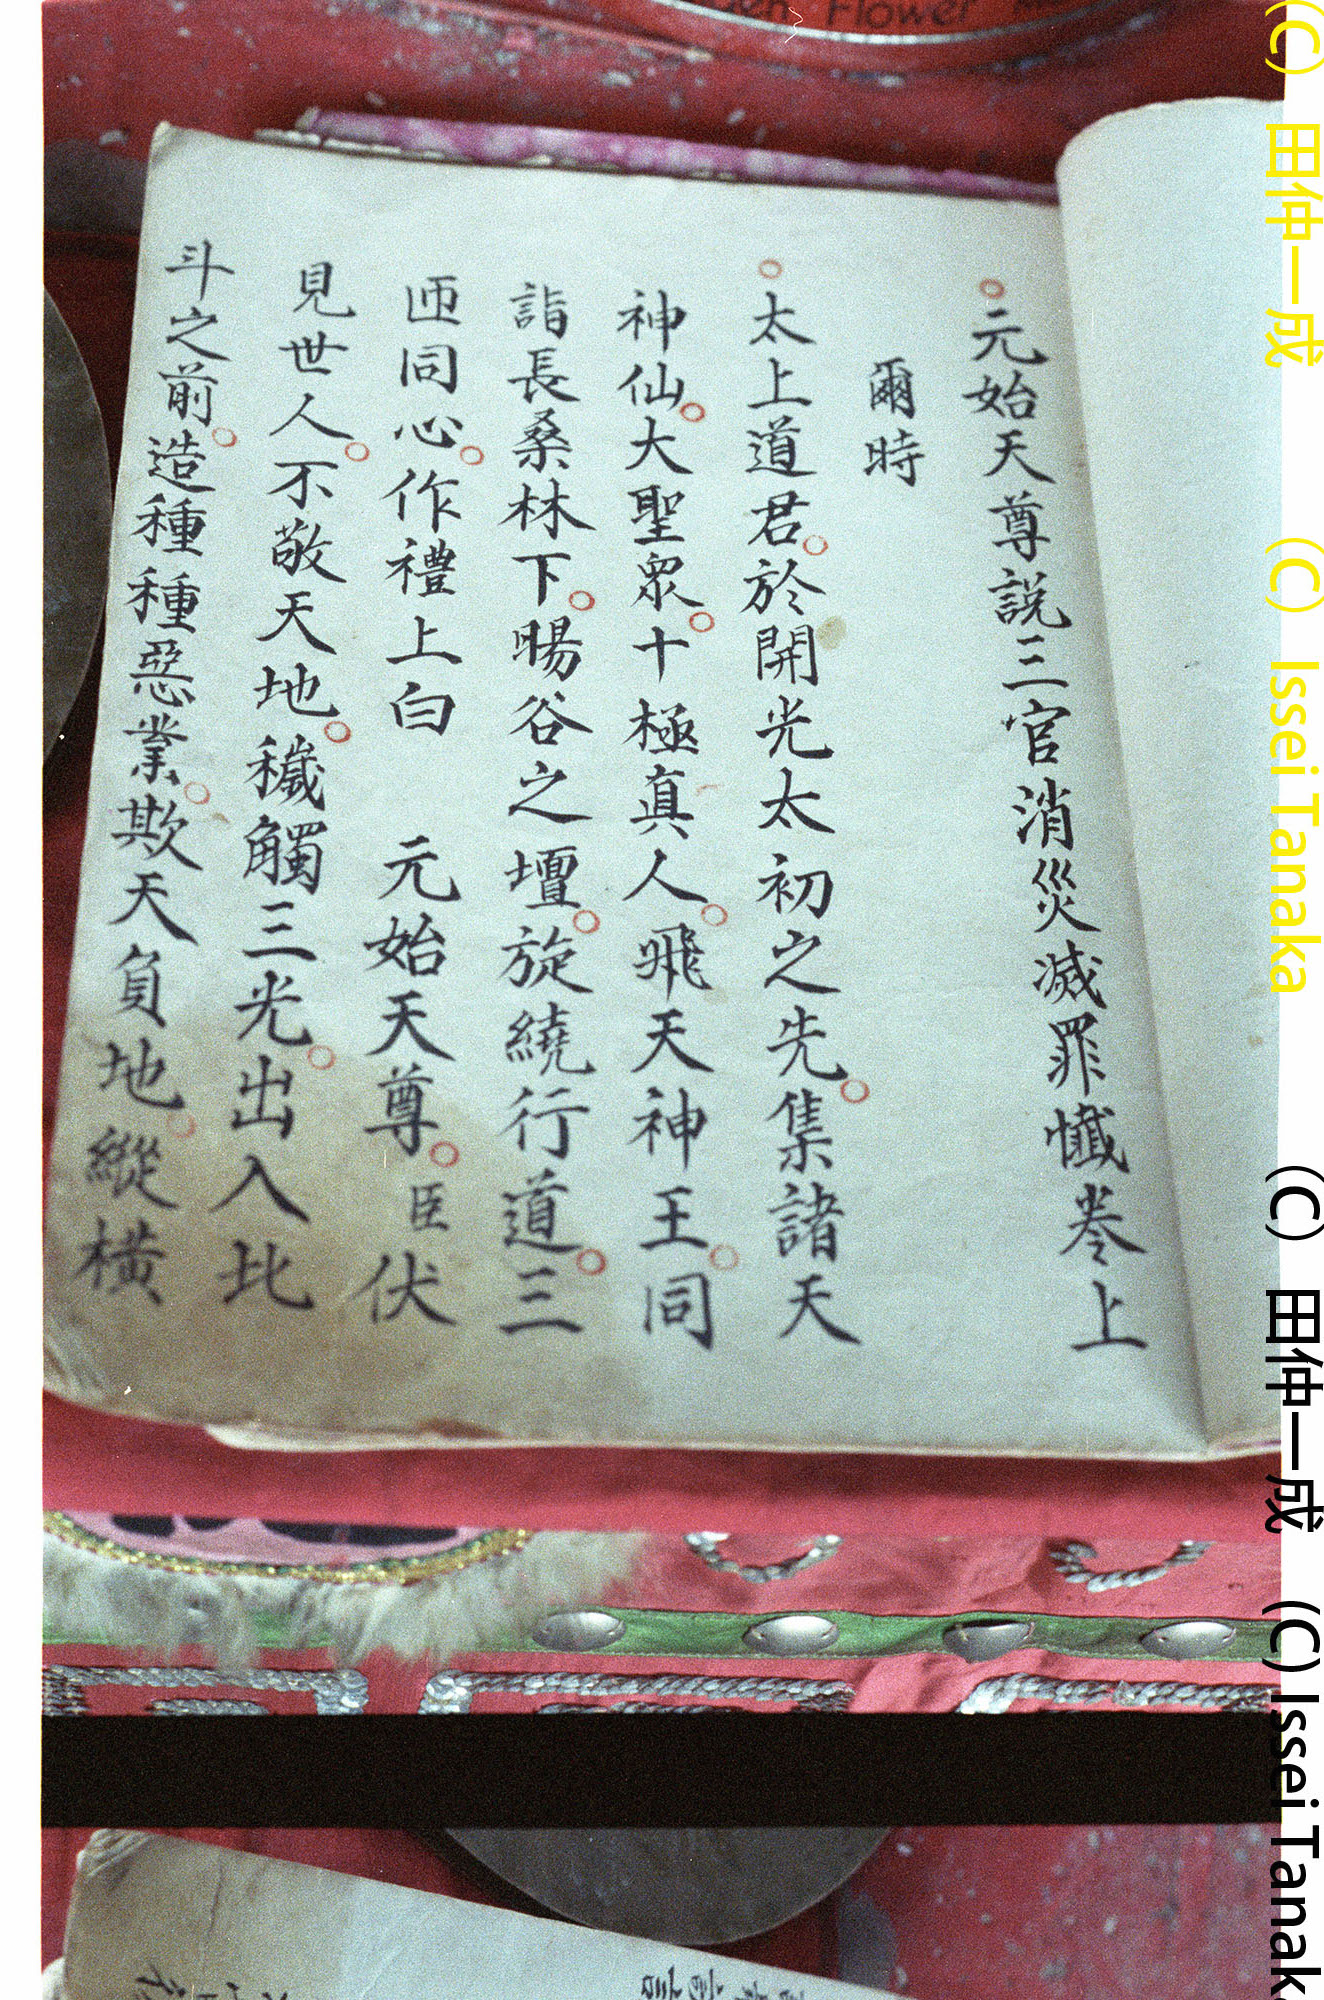 元始天尊説三官消災滅罪懺卷上
爾時
太上道君於開光太初之先集諸天
神仙大聖衆十極真人飛天神王同
詣長桑林下暘谷之壇旋繞行道三
匝同心作禮上白　元始天尊臣伏
見世人不敬天地穢觸三光出入北
斗之前造種種惡業欺天負地縱横
Flower
(C) 田仲一成 (C) Issei Tanaka
(C) 田仲一成 (C) Issei Tanak